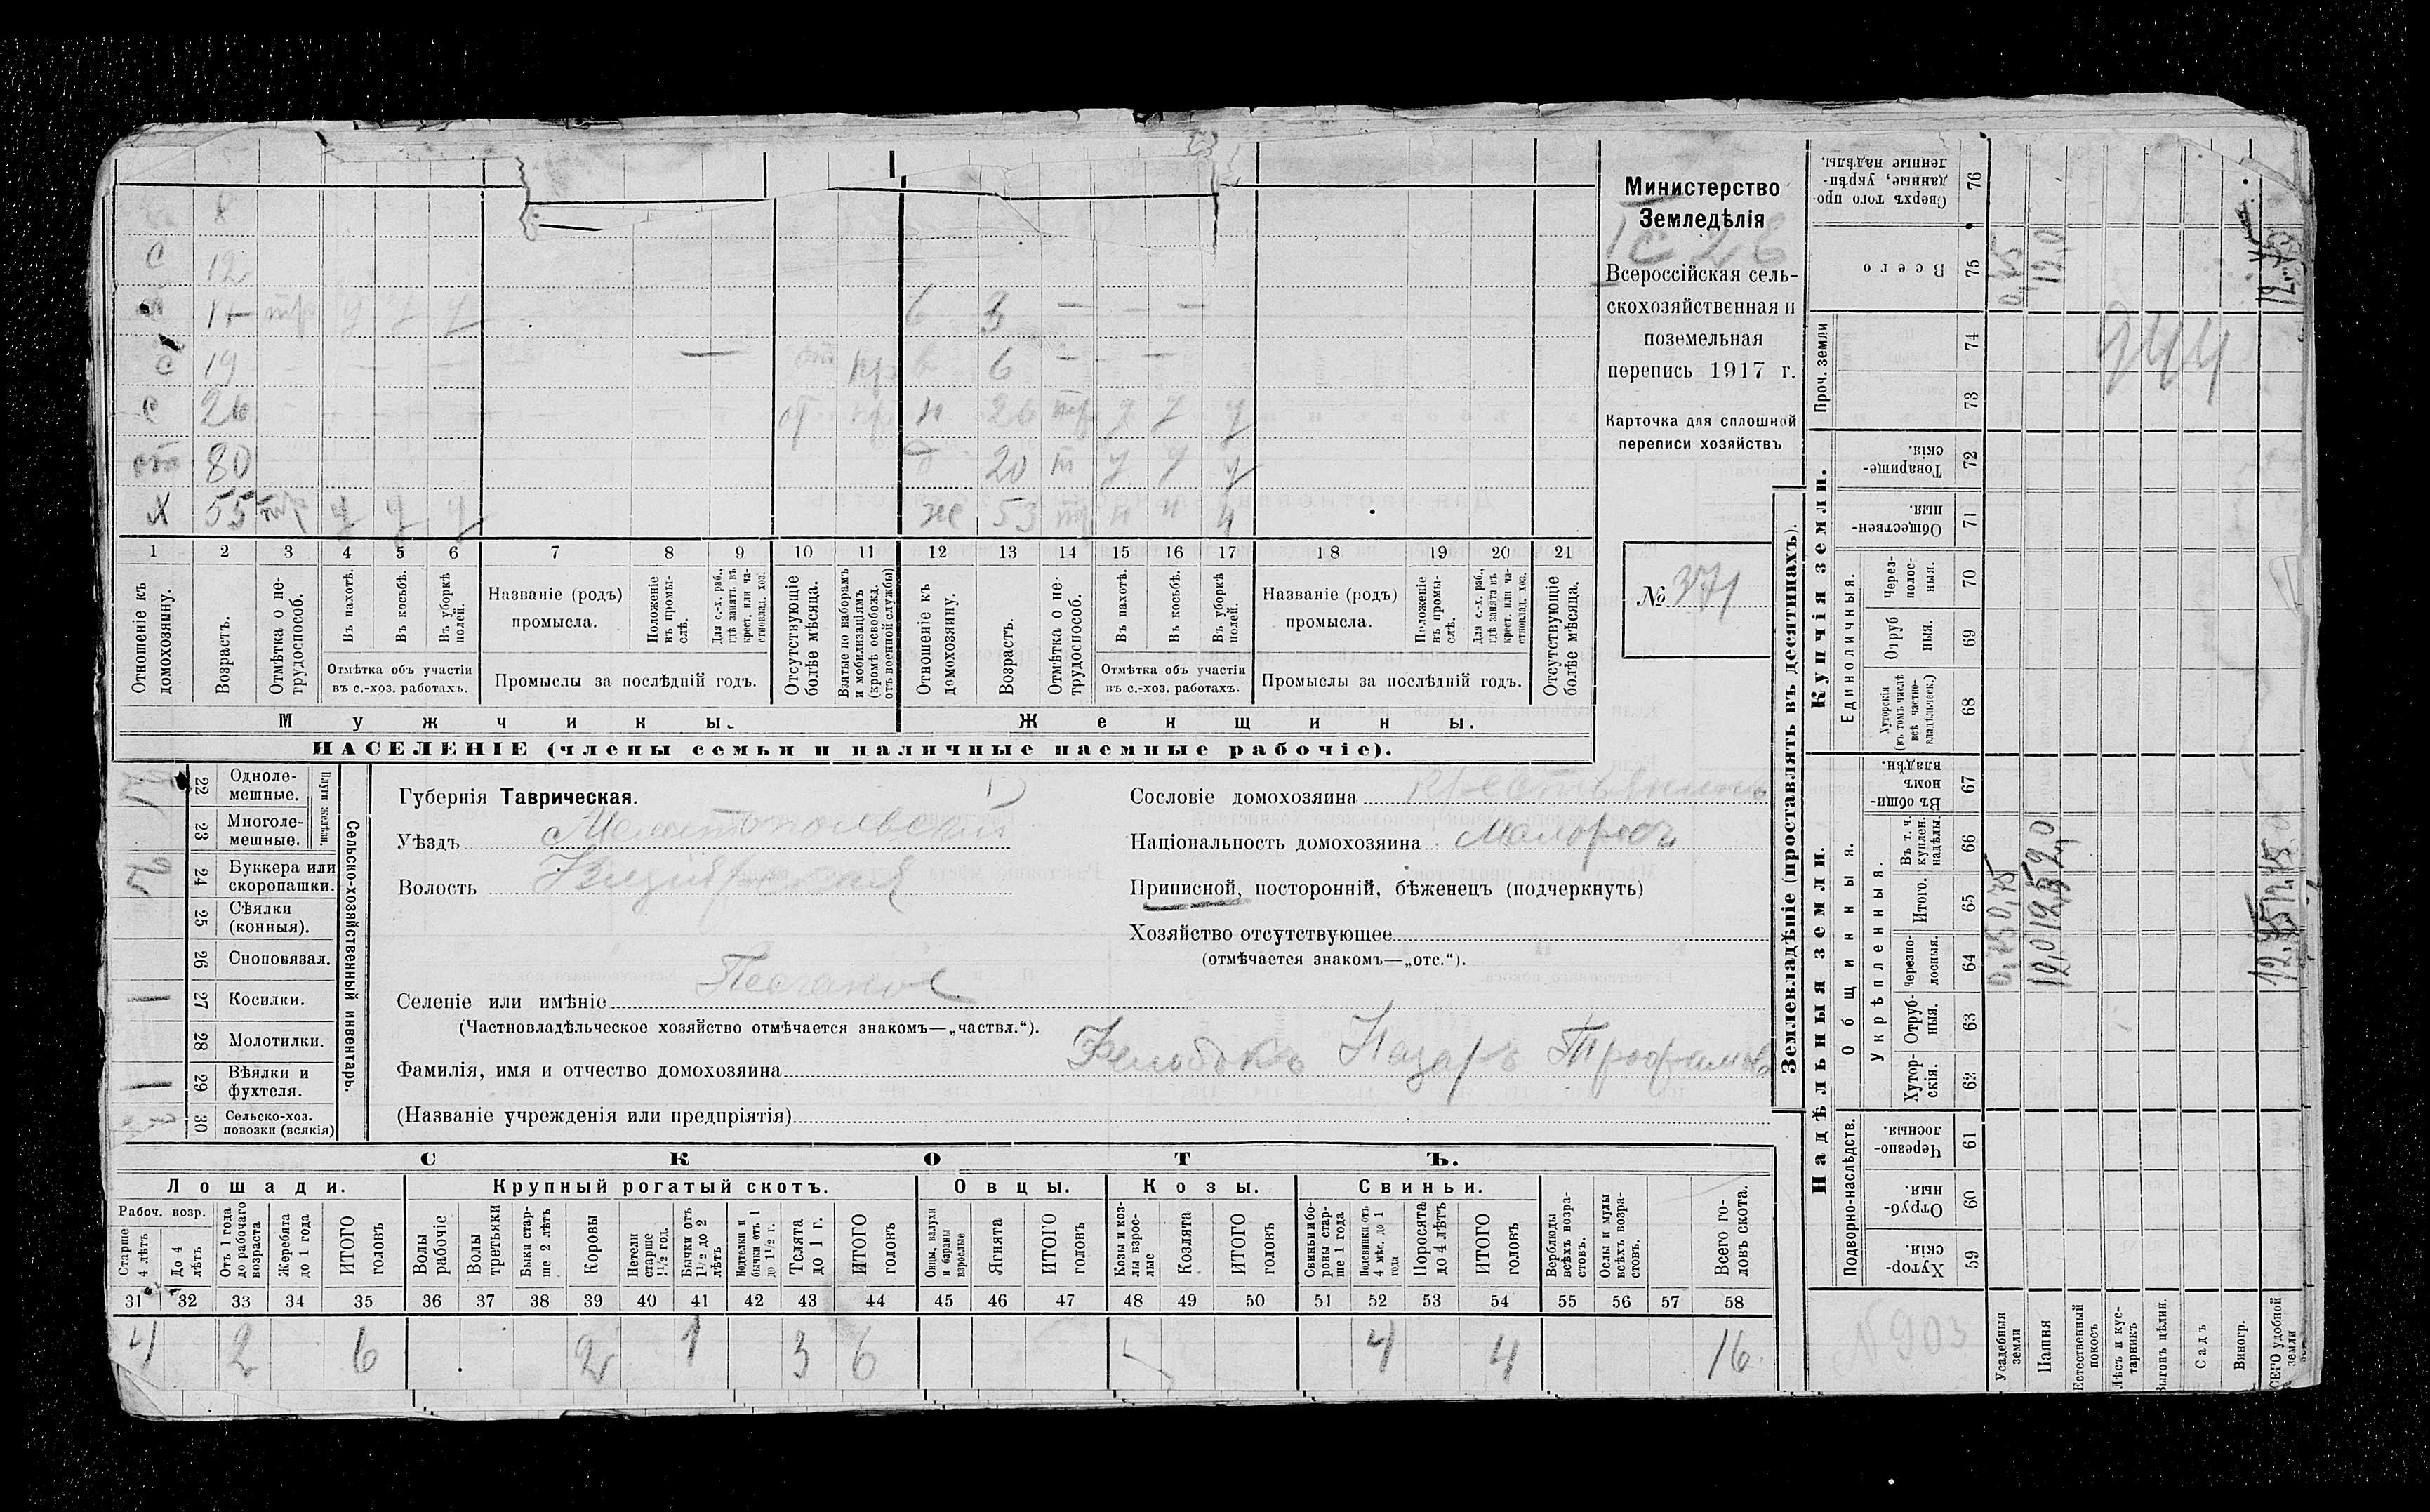 8
с 12
тр ч ч ч 6 3 — — —
с 19 — — — — 6 — —
с 26 н 20 тр ч ч ч
от 80 20 т ч ч ч
Х 55 тр ч ч ч же 53 тр ч ч ч
1 2 3 4 5 6 7 8 9 10 11 12 13 14 15 16 17 18 19 20 21
Отношеніе къ домохозяину.
Возрастъ.
Отмѣтка о не-трудоспособ.
Въ пахотѣ.
Въ косьбѣ.
Въ уборкѣ полей.
Отмѣтка объ участіи
въ с.-хоз. работахъ.
Названіе (родъ)
промысла.
Положеніе въ промы-слѣ.
Для с.-х. раб., гдѣ занятъ въ крест. или ча-стновлад. хоз.
Промыслы за послѣдній годъ.
Отсутствующіе болѣе мѣсяца.
Взятые по наборамъ и мобилизаціямъ (кромѣ освобожд. отъ военной службы)
Отношеніе къ домохозяину.
Возрастъ.
Отмѣтка о не-трудоспособ.
Въ пахотѣ.
Въ косьбѣ.
Въ уборкѣ полей.
Отмѣтка объ участіи
въ с.-хоз. работахъ.
Названіе (родъ)
промысла.
Положеніе въ промы-слѣ.
Для с.-х. раб., гдѣ занята въ крест. или ча-стновлад. хоз.
Промыслы за послѣдній годъ.
Отсутствующіе болѣе мѣсяца.
Мужчины.
Женщины.
НАСЕЛЕНІЕ (члены семьи и наличные наемные рабочіе).
Министерство
Земледѣлія
Всероссійская сель-
скохозяйственная и
поземельная
перепись 1917 г.
Карточка для сплошной
переписи хозяйствъ
№ 371
22 Одноле-
мешные.
23 Многоле-
мешные.
Плуги желѣзн.
24 Буккера или
скоропашки.
25 Сѣялки
(конныя).
26 Сноповязал.
1 27 Косилки.
28 Молотилки.
1 29 Вѣялки и
фухтеля.
30 Сельско-хоз.
повозки (всякія)
Сельско-хозяйственный инвентарь.
Губернія Таврическая.
Уѣздъ Мелитопольскій
Волость
Селеніе или имѣніе Песчаное
(Частновладѣльческое хозяйство отмѣчается знакомъ—„частвл.“).
Фамилія, имя и отчество домохозяина Назаръ Трофимовъ
(Названіе учрежденія или предпріятія)
Сословіе домохозяина крестьянинъ
Національность домохозяина Малороссъ
Приписной, посторонній, бѣженецъ (подчеркнуть)
Хозяйство отсутствующее
(отмѣчается знакомъ—„отс.“).
СКОТЪ.
Лошади. Крупный рогатый скотъ. Овцы. Козы. Свиньи.
Рабоч. возр.
Старше 4 лѣтъ
До 4 лѣтъ
Отъ 1 года до рабочаго возраста
Жеребята до 1 года
ИТОГО головъ
Волы рабочіе
Волы третьяки
Быки стар-ше 2 лѣтъ
Коровы
Нетели старше 1½ год.
Бычки отъ 1½ до 2 лѣтъ
Нетелки и бычки отъ 1 до 1½ г.
Телята до 1 г.
ИТОГО головъ
Овцы, валухи и бараны взрослые
Ягнята
ИТОГО головъ
Козы и коз-лы взрос-лые
Козлята
ИТОГО головъ
Свиньи и бо-ровы стар-ше 1 года
Подсвинки отъ 4 мѣс. до 1 года
Поросята до 4 лѣтъ
ИТОГО головъ
Верблюды всѣхъ возра-стовъ.
Ослы и мулы всѣхъ возра-стовъ.
Всего го-ловъ скота.
31 32 33 34 35 36 37 38 39 40 41 42 43 44 45 46 47 48 49 50 51 52 53 54 55 56 57 58
4 2 6 2 1 3 6 4 4 16
Землевладѣніе (проставлять въ десятинахъ).
Надѣльныя земли.
Купчія земли.
Проч. земли
Подворно-наслѣдств.
Общинныя.
Укрѣпленныя.
Единоличныя.
Сверхъ того про-данные, укрѣп-ленные надѣлы. 76
Всего 75 0,75 12,0
74
73
944
Товарище-скія. 72
Обществен-ныя. 71
Через-полос-ныя. 70
Отруб-ныя. 69
Хуторскія (въ томъ числѣ всѣ частно-владѣльческ.) 68
Въ общин-номъ владѣн. 67
Въ т. ч. куплен. надѣлы. 66
Итого. 65 0,75
Черезпо-лосныя. 64 0,75 12,0
Отруб-ныя. 63
Хутор-скія. 62
Черезпо-лосныя. 61
Отруб-ныя. 60
Хутор-скія. 59
№ 903
Усадебныя земли
Пашня
Естественный покосъ
Лѣсъ и кус-тарникъ
Выгонъ цѣлин.
Садъ
Виногр.
ВСЕГО удобной земли